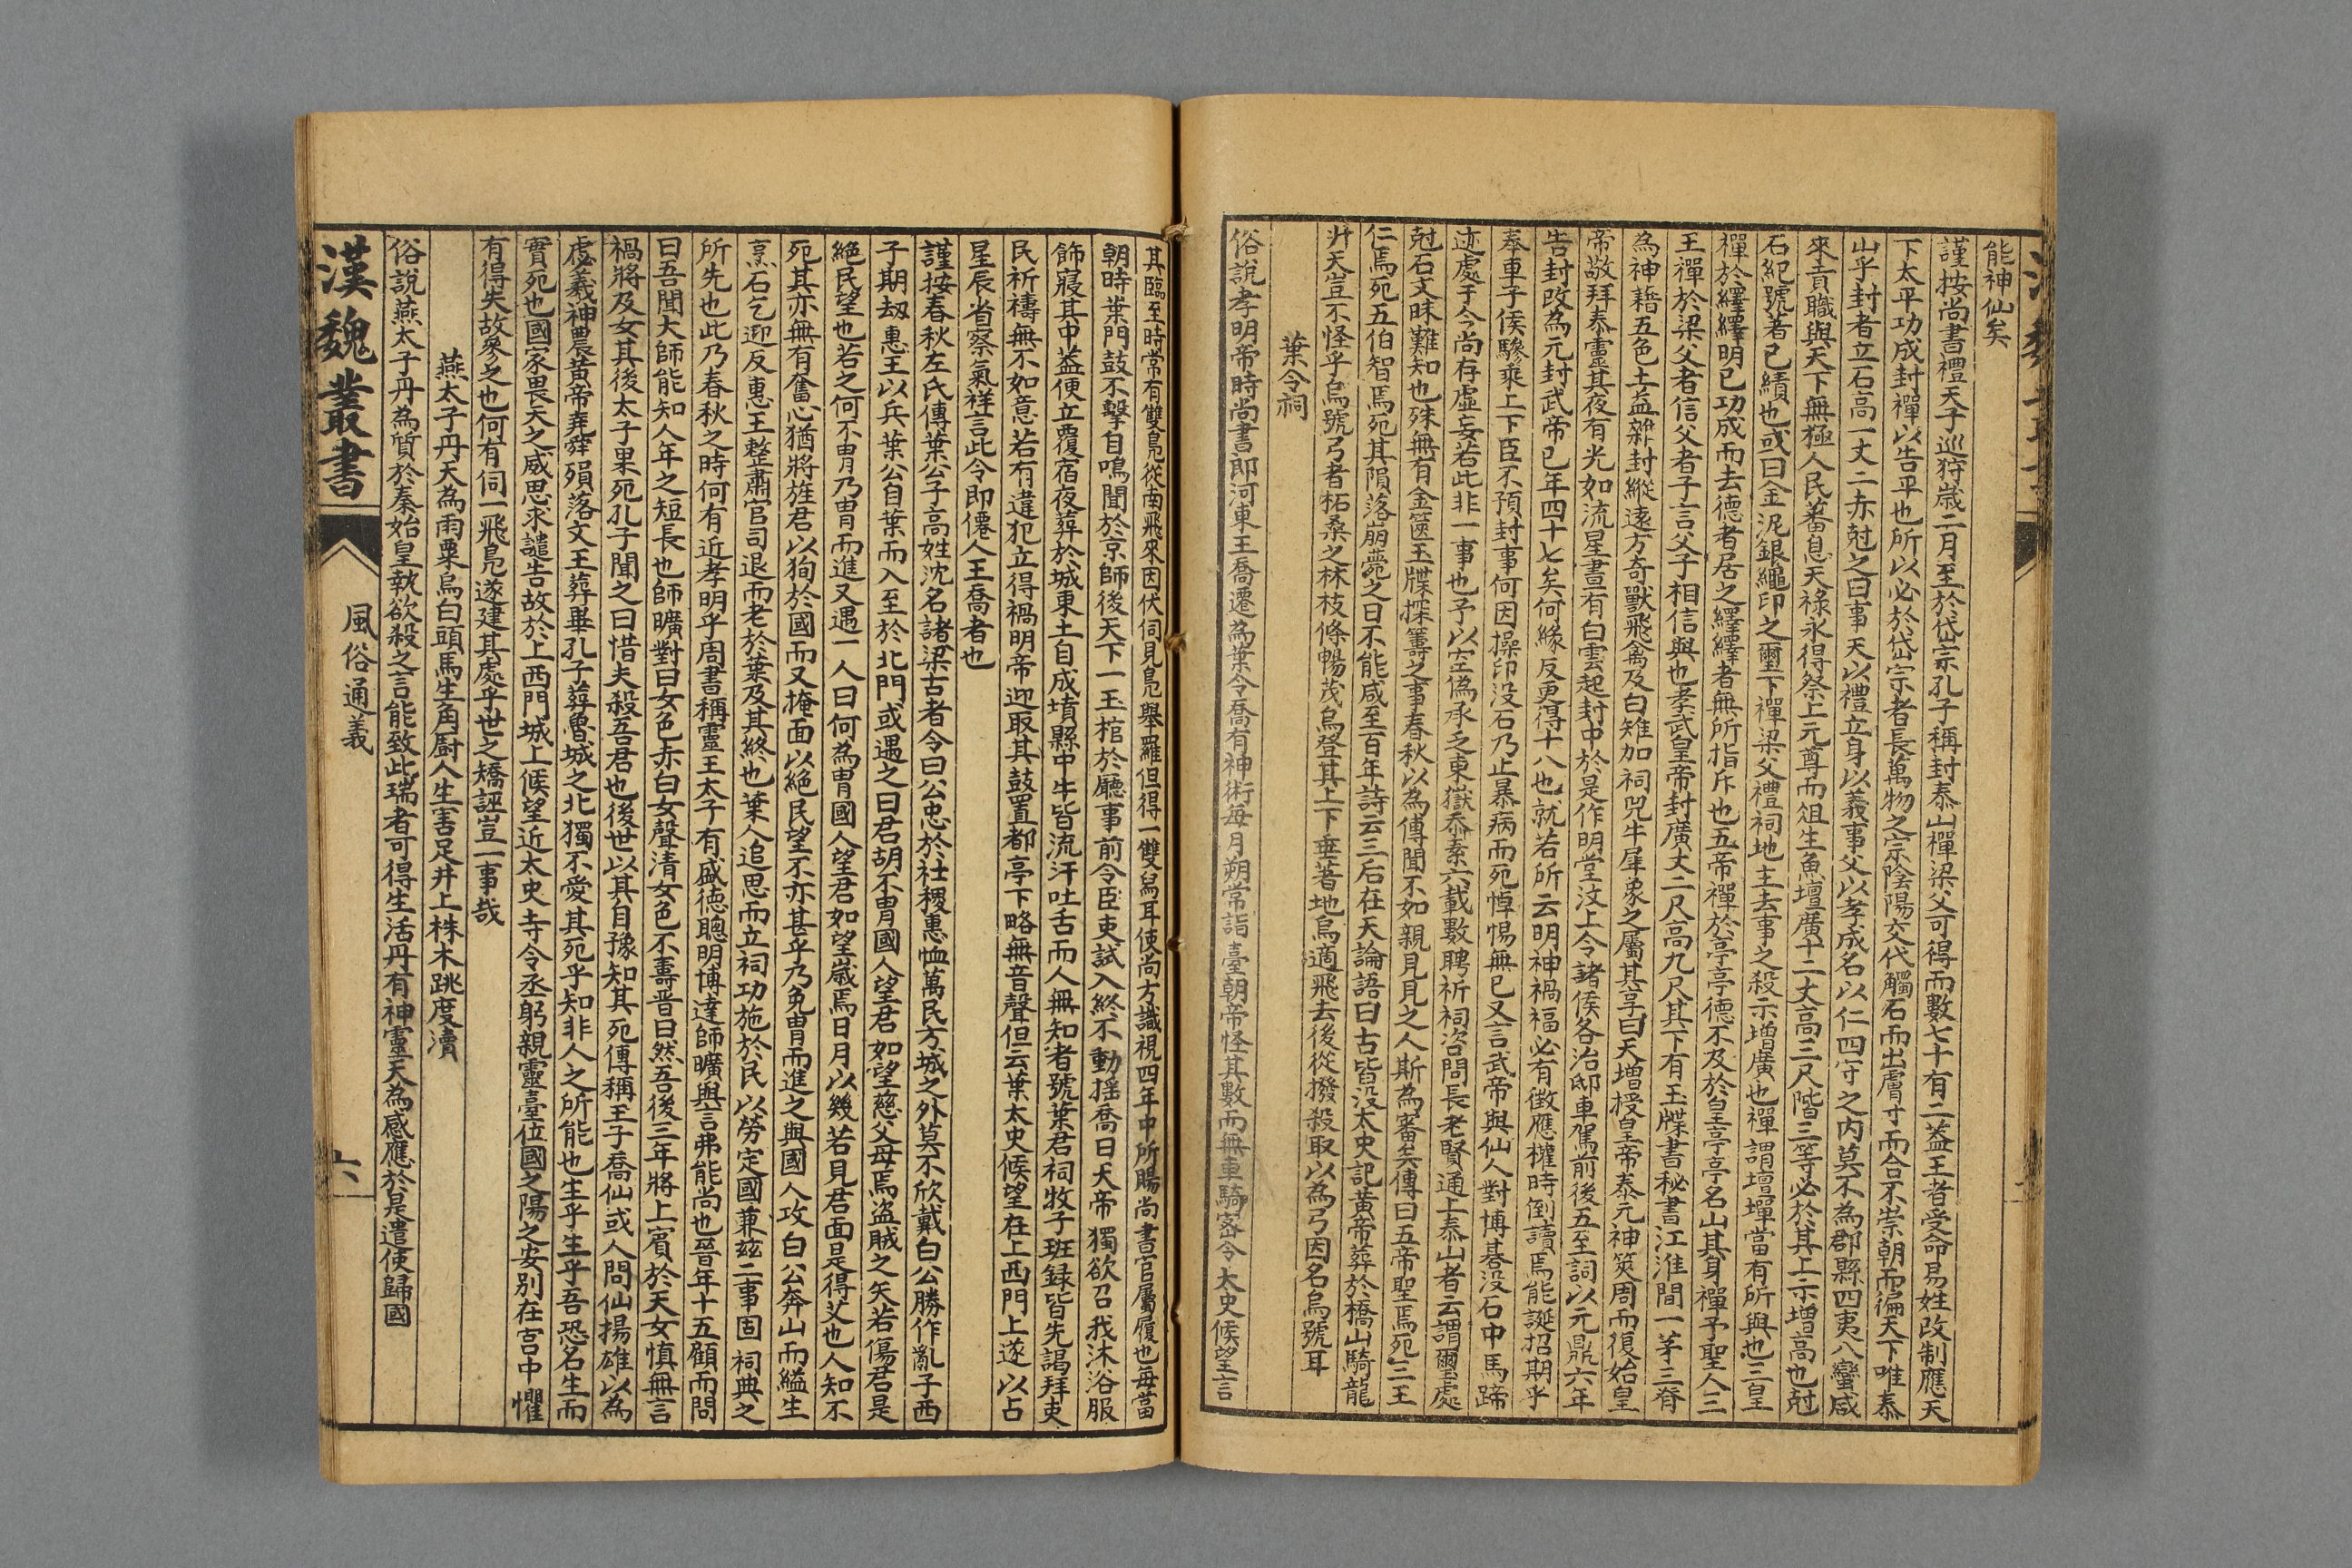 能神仙矣
謹按尚書禮天子巡狩歲二月至於岱宗孔子稱封泰山禪梁父可得而數七十有二葢王者受命易姓改制應天
下太平功成封禪以告平也所以必於岱宗者長萬物之宗陰陽交代觸石而出膚寸而合不崇朝而徧天下唯泰
山乎封者立石高一丈二赤尅之曰事天以禮立身以義事父以孝成名以仁四守之内莫不為郡縣四夷八蠻咸
來貢職與天下無極人民蕃息天祿永得祭上元尊而俎生魚壇廣十二丈高三尺階三等必於其上示增高也尅
石紀號著己績也或曰金泥銀繩印之璽下禪梁父禮祠地主去事之殺示增廣也禪謂壇墠當有所與也三皇
禪於繹繹明己功成而去德者居之繹繹者無所指斥也五帝禪於亭亭德不及於皇亭亭名山其身禪予聖人三
王禪於梁父者信父者子言父子相信與也孝武皇帝封廣丈二尺高九尺其下有玉牒書秘書江淮間一茅三脊
為神藉五色土益雜封縱遠方奇獸飛禽及白雉加祠兕牛犀象之屬其享曰天增授皇帝泰元神筴周而復始皇
帝敬拜泰靈其夜有光如流星晝有白雲起封中於是作明堂汶上令諸侯各治邸車駕前後五至詞以元鼎六年
告封改為元封武帝已年四十七矣何緣反更得十八也就若所云明神禍福必有徵應權時倒讀焉能誕招期乎
奉車子侯驂乘上下臣不預封事何因操印没石乃止暴病而死悼惕無已又言武帝與仙人對博碁没石中馬蹄
迹處于今尚存虚妄若此非一事也予以空偽承乏東嶽泰素六載數聘祈祠咨問長老賢通上泰山者云謂璽處
尅石文昧難知也殊無有金篋玉牒探籌之事春秋以為傳聞不如親見見之人斯為審矣傳曰五帝聖焉死三王
仁焉死五伯智焉死其隕落崩薨之日不能咸至百年詩云三后在天論語曰古皆没太史記黄帝葬於橋山騎龍
升天豈不怪乎烏號弓者柘桑之林枝條暢茂烏登其上下垂著地烏適飛去後從撥殺取以為弓因名烏號耳
葉令祠
俗說孝明帝時尚書郎河東王喬遷為葉令喬有神術每月朔常詣臺朝帝怪其數而無車騎密令太史候望言
其臨至時常有雙鳧從南飛來因伏伺見鳧舉羅但得一雙舄耳使尚方識視四年中所賜尚書官屬履也每當
朝時葉門鼓不擊自鳴聞於京師後天下一玉棺於廳事前令臣吏試入終不動搖喬曰天帝獨欲召我沐浴服
飾寢其中葢便立覆宿夜葬於城東土自成墳縣中牛皆流汗吐舌而人無知者號葉君祠牧守班録皆先謁拜吏
民祈禱無不如意若有違犯立得禍明帝迎取其鼓置都亭下略無音聲但云葉太史候望在上西門上遂以占
星辰省察氣祥言此令即僊人王喬者也
謹按春秋左氏傳葉公子高姓沈名諸梁古者令曰公忠於社稷惠恤萬民方城之外莫不欣戴白公勝作亂子西
子期刼惠王以兵葉公自葉而入至於北門或遇之曰君胡不冑國人望君如望慈父母焉盗賊之矢若傷君是
絕民望也若之何不冑乃冑而進又遇一人曰何為冑國人望君如望歲焉日月以幾若見君面是得艾也人知不
死其亦無有奮心猶將旌君以狥於國而又掩面以絕民望不亦甚乎乃免冑而進之與國人攻白公奔山而縊生
烹石乞迎反惠王整肅官司退而老於葉及其終也葉人追思而立祠功施於民以勞定國兼兹二事固祠典之
所先也此乃春秋之時何有近孝明乎周書稱靈王太子有盛德聰明博達師曠與言弗能尚也晉年十五顧而問
曰吾聞大師能知人年之短長也師曠對曰女色赤白女聲清女色不壽晉曰然吾後三年將上賓於天女慎無言
禍將及女其後太子果死孔子聞之曰惜夫殺吾君也後世以其自豫知其死傳稱王子喬仙或人問仙揚雄以為
虙羲神農黄帝堯舜殞落文王葬畢孔子葬魯城之北獨不愛其死乎知非人之所能也生乎生乎吾恐名生而
實死也國家畏天之威思求譴告故於上西門城上候望近太史寺令丞躬親靈臺位國之陽之安别在宫中懼
有得失故參之也何有伺一飛鳧遂建其處乎世之矯誣豈一事哉
燕太子丹天為雨粟烏白頭馬生角厨人生害足井上株木跳度瀆
俗說燕太子丹為質於秦始皇執欲殺之言能致此瑞者可得生活丹有神靈天為感應於是遣使歸國
漢魏叢書
風俗通義
六